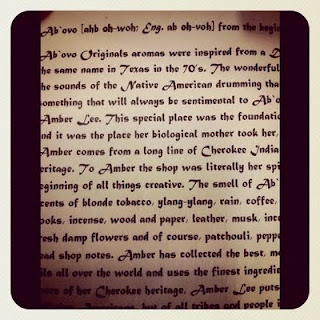 Ab`ovo [ahb oh-woh; Eng. ab oh-voh] from the begin
Ab`ovo Originals aromas were inspired from a
the same name in Texas in the 70's. The wonderful
the sounds of the Native American drumming tha
something that will always be sentimental to Ab`o
Amber Lee. This special place was the foundatio
nd it was the place her biological mother took her,
Amber comes from a long line of Cherokee India
eritage. To Amber the shop was literally her spi
eginning of all things creative. The smell of Ab`
cents of blonde tobacco, ylang-ylang, rain, coffee,
ooks, incense, wood and paper, leather, musk, inc
resh damp flowers and of course, patchouli, peppe
ead shop notes. Amber has collected the best, m
ils all over the world and uses the finest ingredie
ors of her Cherokee heritage, Amber Lee puts
but of all tribes and people i